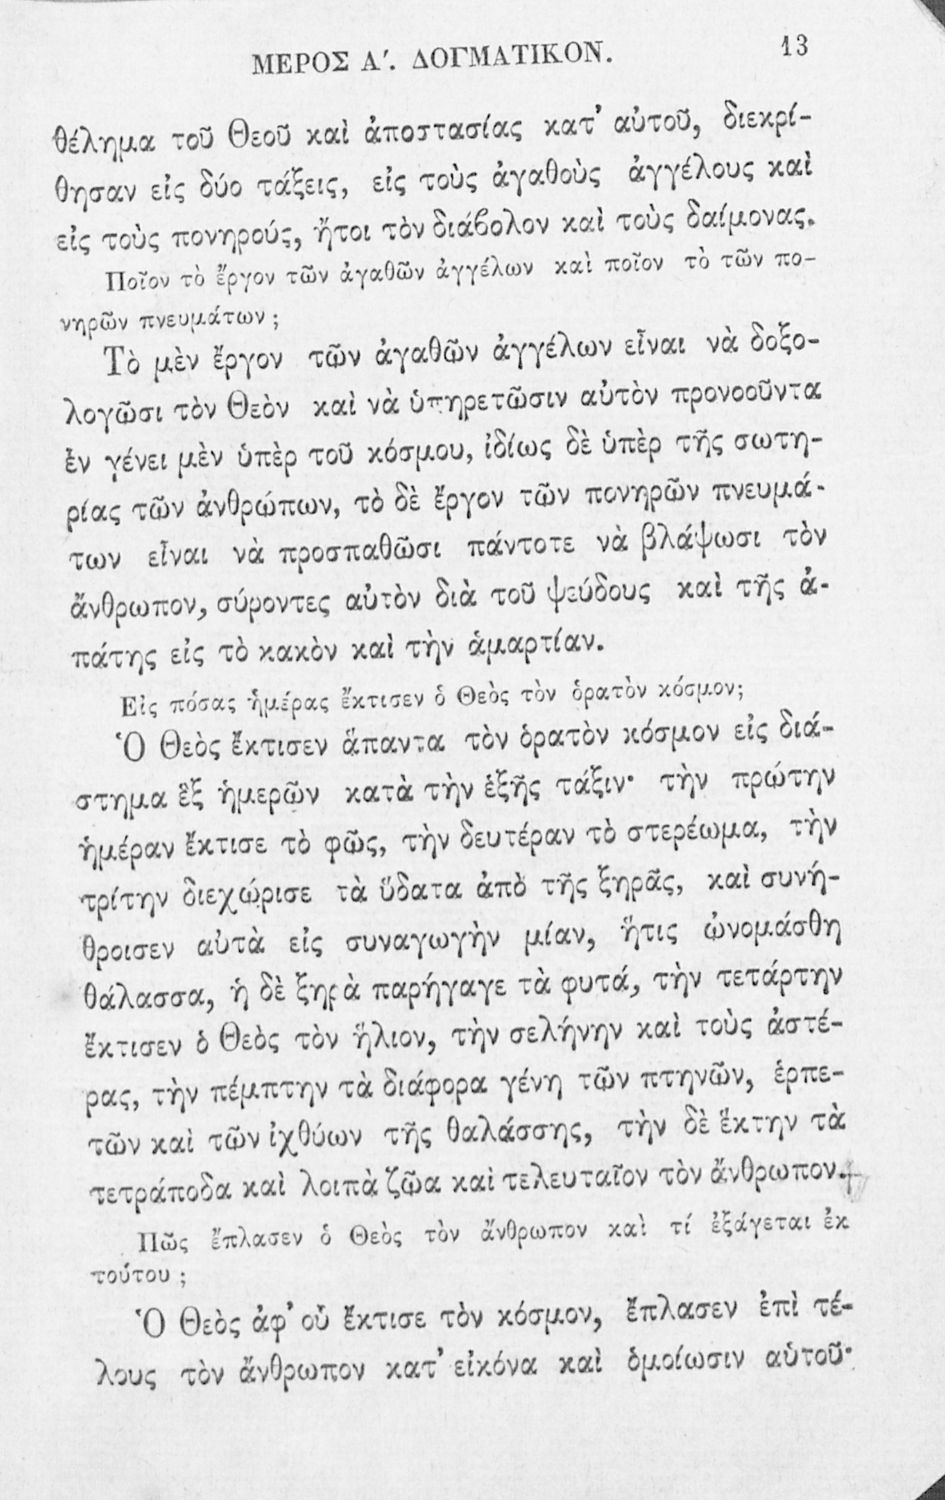 ΜΕΡΟΣ Α΄. ΔΟΓΜΑΤΙΚΟΝ. 13
θέλημα τοῦ Θεοῦ καὶ ἀποστασίας κατ' αὐτοῦ, διεκρί-
θησαν εἰς δύο τάξεις, εἰς τοὺς ἀγαθοὺς ἀγγέλους καὶ
εἰς τοὺς πονηρούς, ἤτοι τὸν διάβολον καὶ τοὺς δαίμονας.
Ποῖον τὸ ἔργον τῶν ἀγαθῶν ἀγγέλων καὶ ποῖον τὸ τῶν πο-
νηρῶν πνευμάτων ;
Τὸ μὲν ἔργον τῶν ἀγαθῶν ἀγγέλων εἶναι νὰ δοξο-
λογῶσι τὸν Θεὸν καὶ νὰ ὑπηρετῶσιν αὐτὸν προνοοῦντα
ἐν γένει μὲν ὑπὲρ τοῦ κόσμου, ἰδίως δὲ ὑπὲρ τῆς σωτη-
ρίας τῶν ἀνθρώπων, τὸ δὲ ἔργον τῶν πονηρῶν πνευμά-
των εἶναι νὰ προσπαθῶσι πάντοτε νὰ βλάψωσι τὸν
ἄνθρωπον, σύροντες αὐτὸν διὰ τοῦ ψεύδους καὶ τῆς ἀ-
πάτης εἰς τὸ κακὸν καὶ τὴν ἁμαρτίαν.
Εἰς πόσας ἡμέρας ἔκτισεν ὁ Θεὸς τὸν ὁρατὸν κόσμον;
Ὁ Θεὸς ἔκτισεν ἅπαντα τὸν ὁρατὸν κόσμον εἰς διά-
στημα ἓξ ἡμερῶν κατὰ τὴν ἑξῆς τάξιν· τὴν πρώτην
ἡμέραν ἔκτισε τὸ φῶς, τὴν δευτέραν τὸ στερέωμα, τὴν
τρίτην διεχώρισε τὰ ὕδατα ἀπὸ τῆς ξηρᾶς, καὶ συνή-
θροισεν αὐτὰ εἰς συναγωγὴν μίαν, ἥτις ὠνομάσθη
θάλασσα, ἡ δὲ ξηρὰ παρήγαγε τὰ φυτά, τὴν τετάρτην
ἔκτισεν ὁ Θεὸς τὸν ἥλιον, τὴν σελήνην καὶ τοὺς ἀστέ-
ρας, τὴν πέμπτην τὰ διάφορα γένη τῶν πτηνῶν, ἑρπε-
τῶν καὶ τῶν ἰχθύων τῆς θαλάσσης, τὴν δὲ ἕκτην τὰ
τετράποδα καὶ λοιπὰ ζῶα καὶ τελευταῖον τὸν ἄνθρωπον.
Πῶς ἔπλασεν ὁ Θεὸς τὸν ἄνθρωπον καὶ τί ἐξάγεται ἐκ
τούτου ;
Ὁ Θεὸς ἀφ' οὗ ἔκτισε τὸν κόσμον, ἔπλασεν ἐπὶ τέ-
λους τὸν ἄνθρωπον κατ' εἰκόνα καὶ ὁμοίωσιν αὑτοῦ·